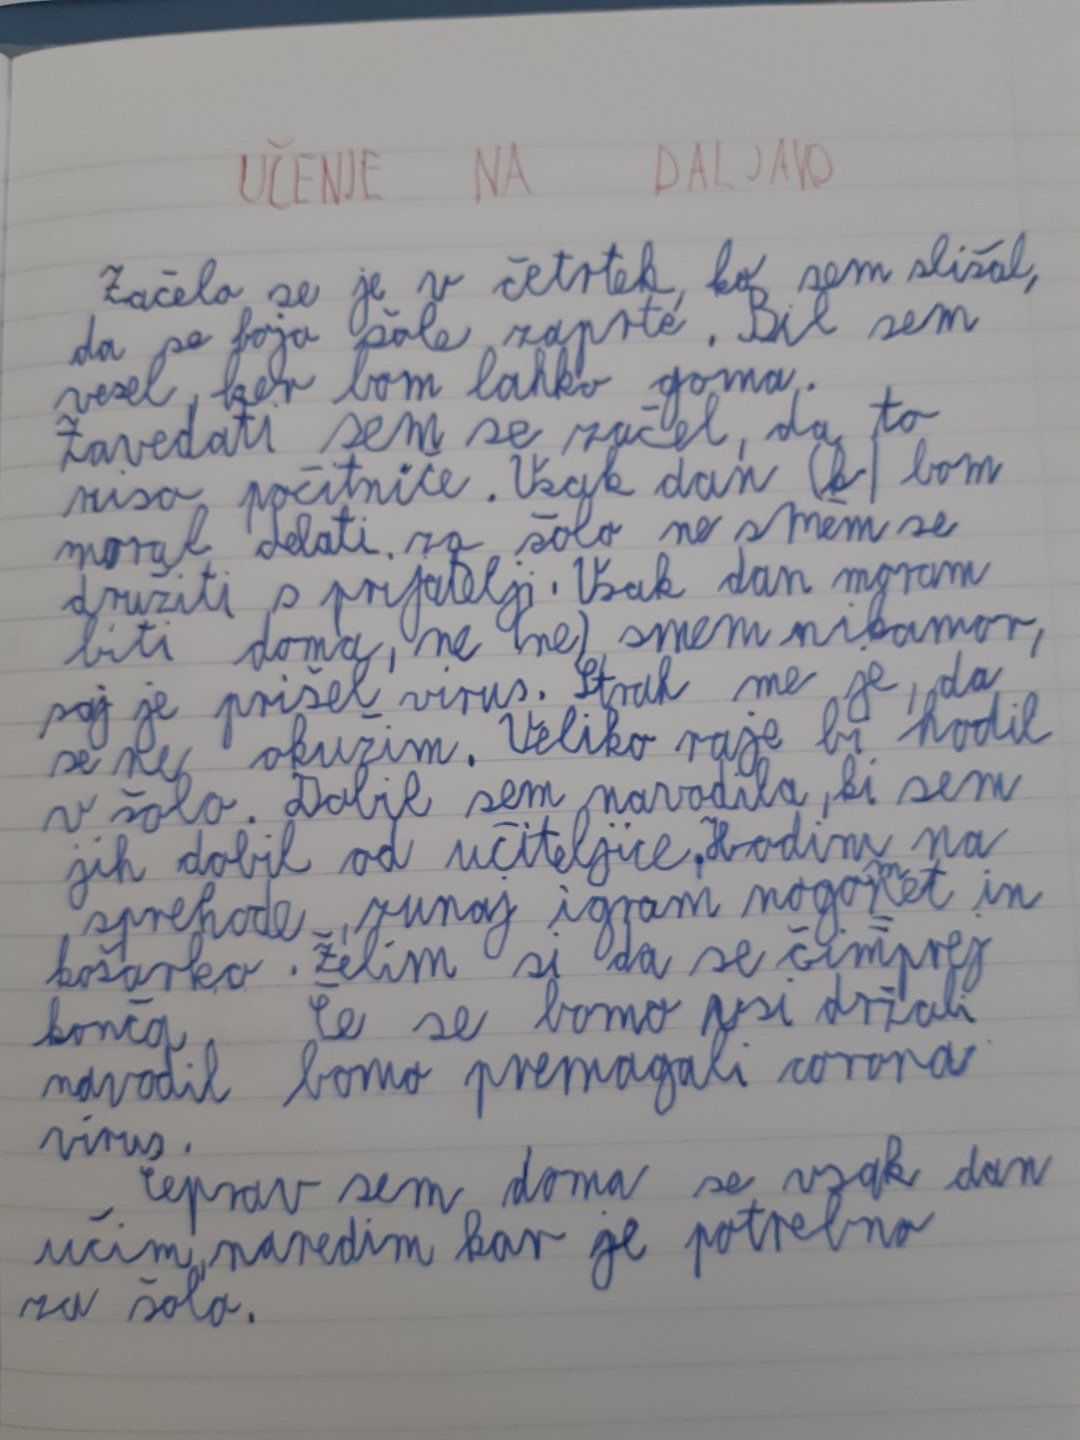 UČENJE NA DALJAVO
Začelo se je v četrtek, ko sem slišal,
da se bojo šole zaprte. Bil sem
vesel, ker bom lahko doma.
Zavedati sem se začel, da to
niso počitnice. Vsak dan (k) bom
moral delati za šolo ne smem se
družiti s prijatelji. Vsak dan moram
biti doma, ne (ne) smem nikamor,
saj je prišel virus. Strah me je, da
se ne okužim. Veliko raje bi hodil
v šolo. Dobil sem navodila, ki sem
jih dobil od učiteljice. Hodim na
sprehode, zunaj igram nogomet in
košarko. Želim si da se čimprej
konča. Če se bomo vsi držali
navodil bomo premagali corona
virus.
Čeprav sem doma se vsak dan
učim, naredim kar je potrebno
za šolo.